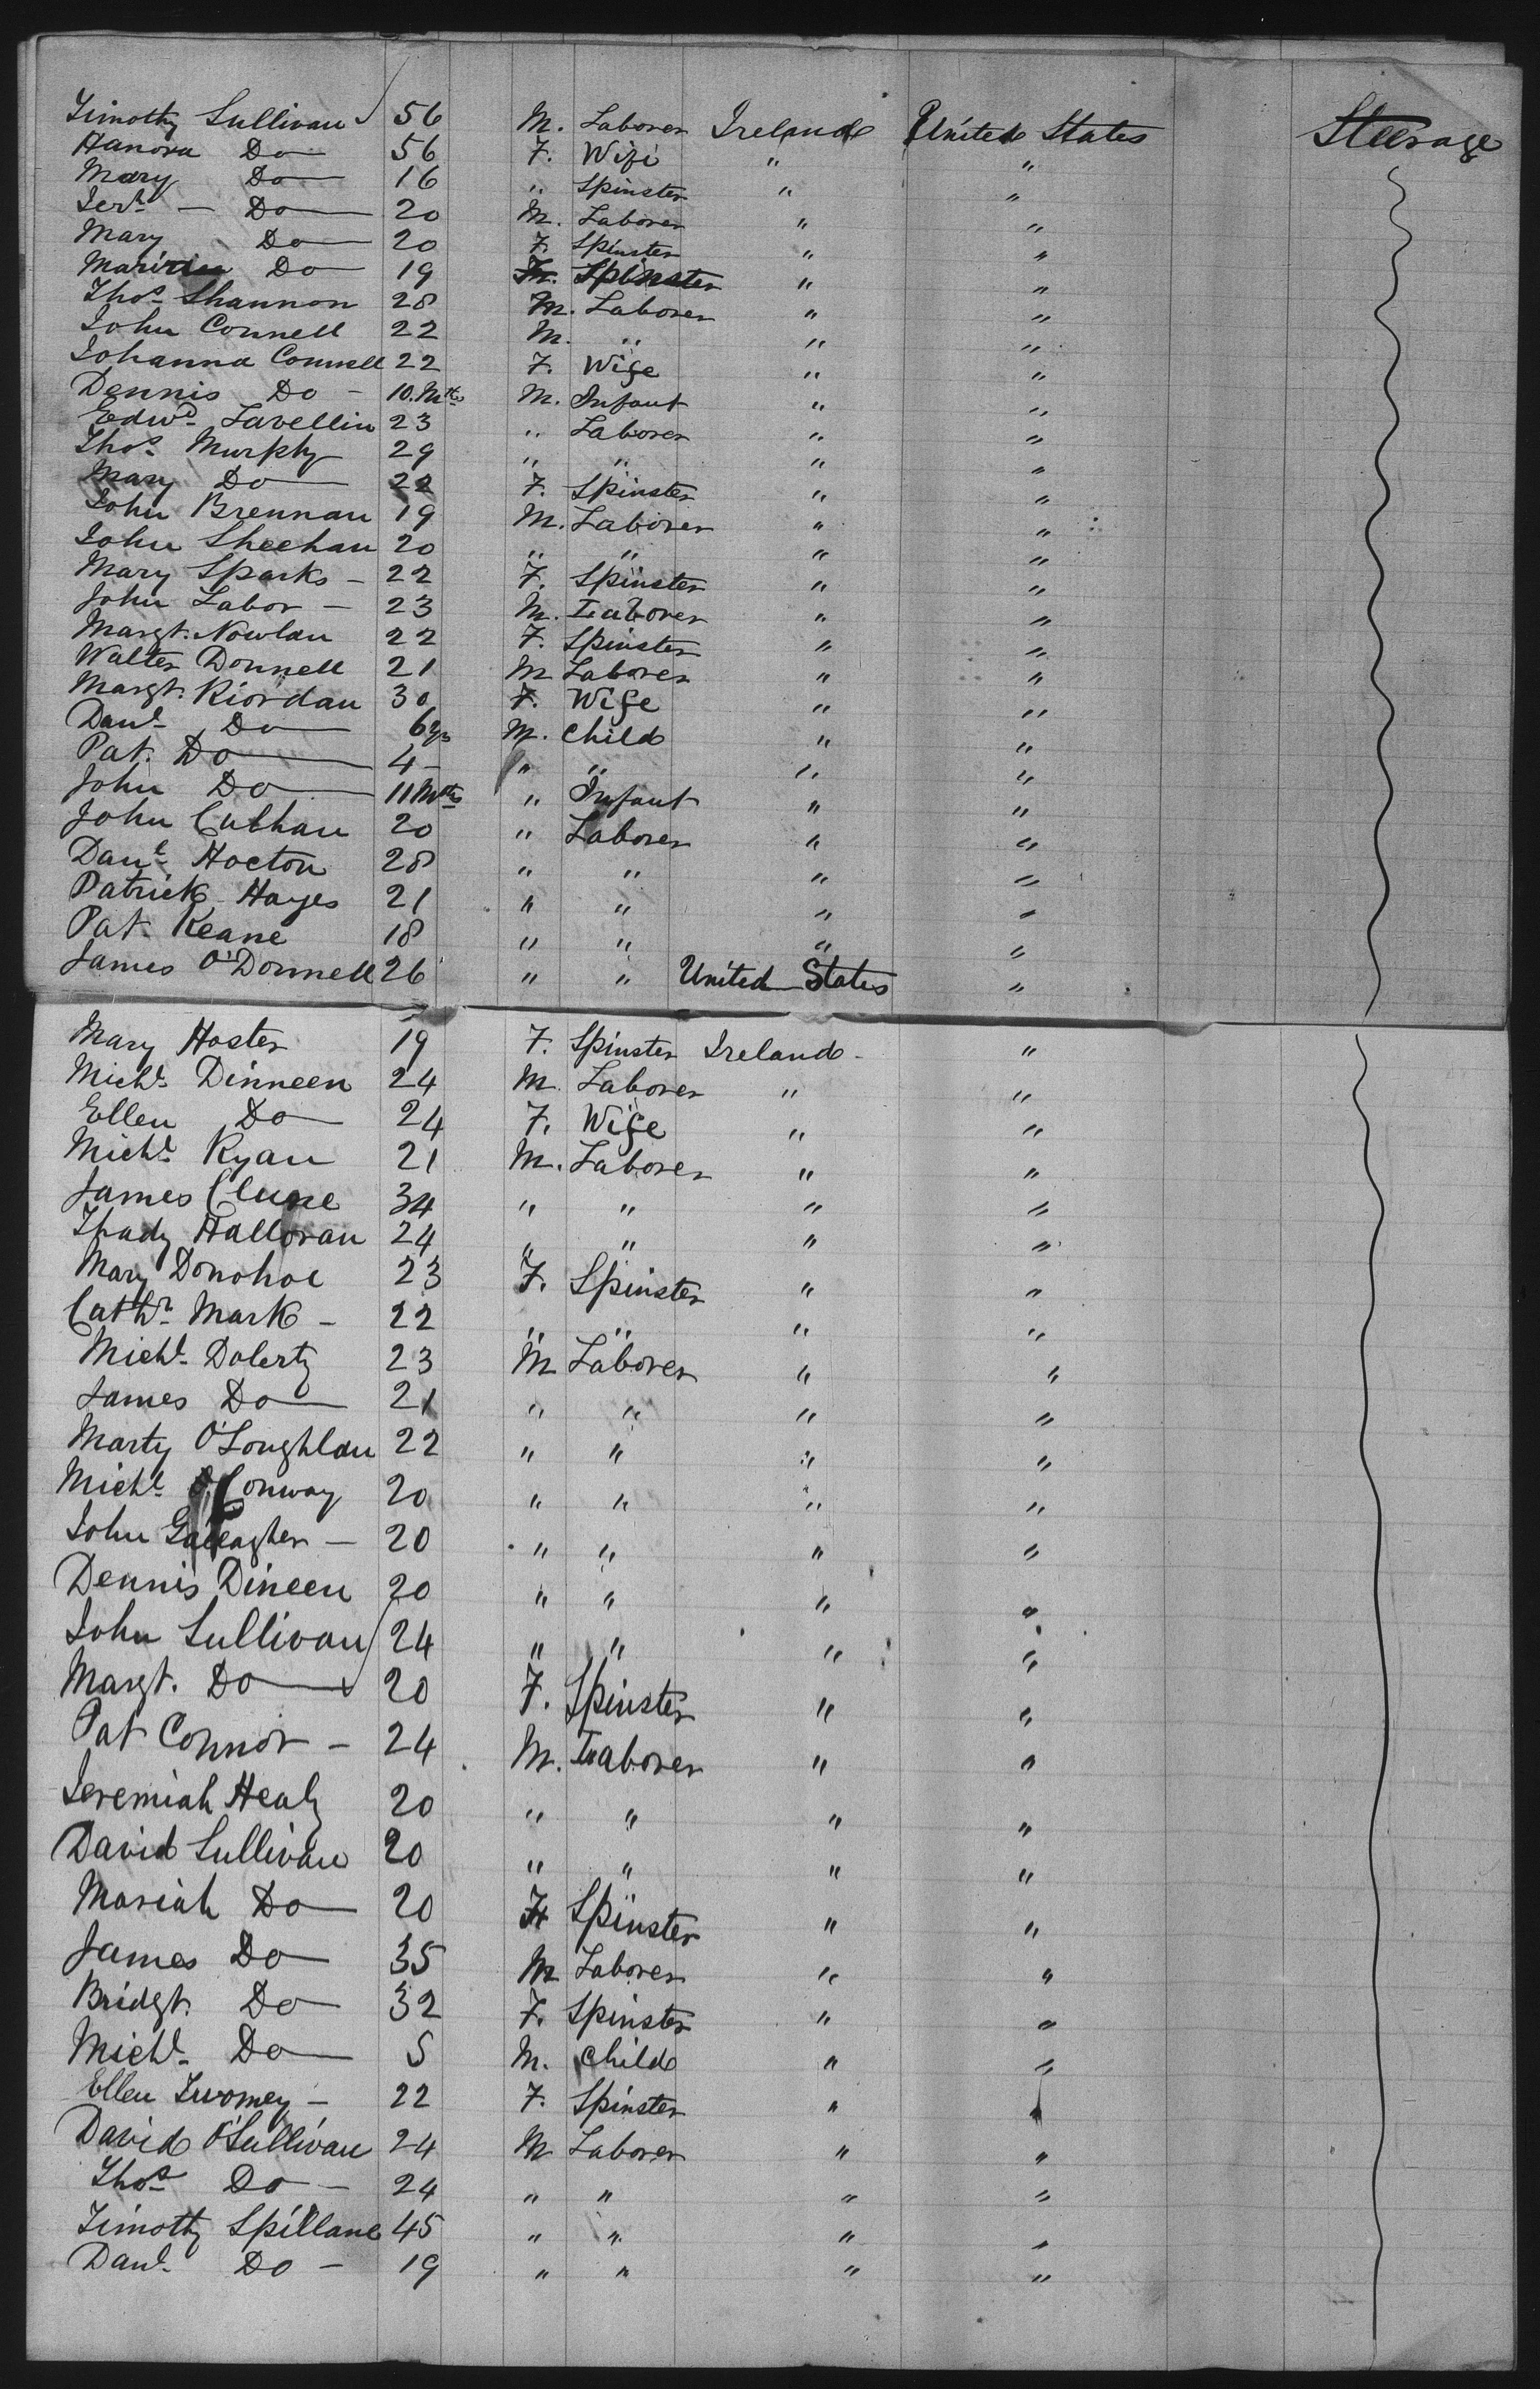 Timothy Sullivan 56 M. Laborer Ireland United States Steerage
Hanora Do 56 F. Wife " "
Mary Do 16 " Spinster " "
Jerh - Do 20 M. Laborer " "
Mary Do 20 F. Spinster " "
Do 19 Spinster " "
Thos Shannon 28 M. Laborer " "
John Connell 22 M. " " "
Johanna Connell 22 F. Wife " "
Dennis Do - 10. Mths M. Infant " "
Edwd Lavellin 23 " Laborer " "
Thos Murphy 29 " " " "
Mary Do 22 F. Spinster " "
John Brennan 19 M. Laborer " "
John Sheehan 20 " " " "
Mary Sparks - 22 F. Spinster " "
John Labor - 23 M. Laborer " "
Margt. Nowlan 22 F. Spinster " "
Walter Donnell 21 M Laborer " "
Margt. Riordan 30 F. Wife " "
Danl Do 6 yrs M. Child " "
Pat. Do 4 - " " " "
John Do 11 Mths " Infant " "
John 20 " Laborer " "
Danl Hocton 28 " " " "
Patrick Hayes 21 " " " "
Pat. Keane 18 " " " "
James O'Donnell 26 " " United States "
Mary Hoster 19 F. Spinster Ireland - "
Michl Dinneen 24 M. Laborer " "
Ellen Do 24 F. Wife " "
Michl Ryan 21 M. Laborer " "
James Clune 34 " " " "
Thady Halloran 24 " " " "
Mary Donohoe 23 F. Spinster " "
Cathn Mark - 22 " " " "
Michl Doherty 23 M Laborer " "
James Do 21 " " " "
Marty O'Loughlan 22 " " " "
Michl Conway 20 " " " "
John Gallagher - 20 " " " "
Dennis Dineen 20 " " " "
John Sullivan 24 " " " "
Margt. Do 20 F. Spinster " "
Pat Connor - 24 M. Laborer " "
Jeremiah Healy 20 " " " "
David Sullivan 20 " " " "
Mariah Do 20 F Spinster " "
James Do 35 M Laborer " "
Bridgt. Do 32 F. Spinster " "
Michl Do 5 M. Child " "
Ellen Twomey - 22 F. Spinster " "
David O'Sullivan 24 M Laborer " "
Thos Do - 24 " " " "
Timothy Spillane 45 " " " "
Danl Do - 19 " " " "